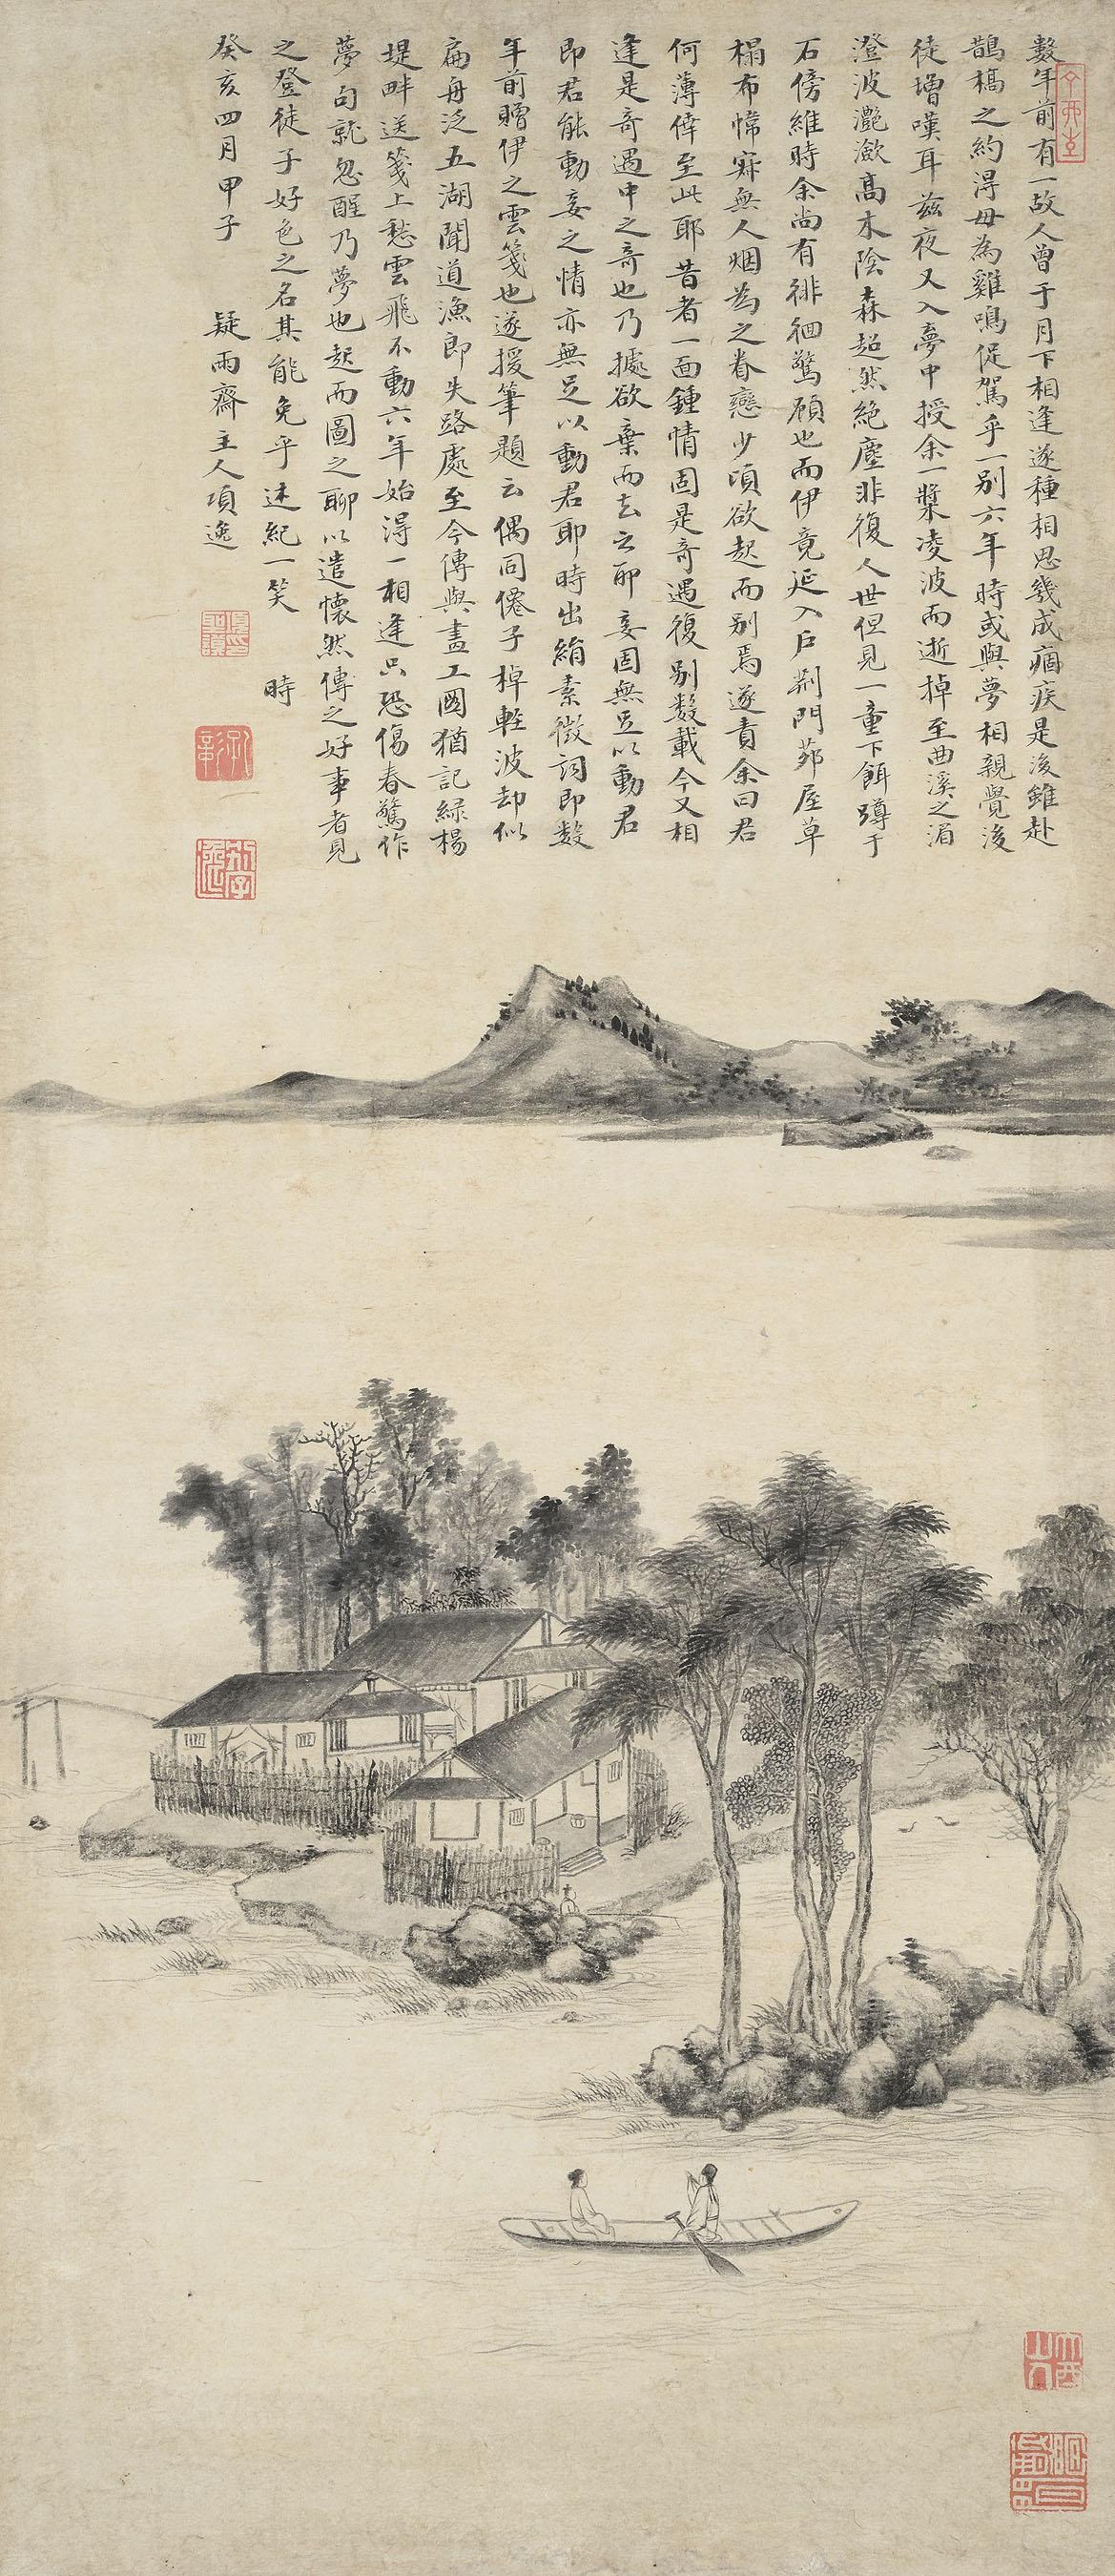 數年前有一故人曾于月下相逢遂種相思幾成痼疾是後雖赴
鵲橋之約得毋為雞鳴促駕乎一別六年時或與夢相親覺後
徒增嘆耳兹夜又入夢中授余一槳凌波而逝掉至曲溪之湄
澄波灔瀲高木陰森超然絕塵非復人世但見一童下餌蹲于
石傍維時余尚有徘徊驚顧也而伊竟延入戶荆門茆屋草
榻布幃寂無人烟為之眷戀少頃欲起而別焉遂責余曰君
何薄倖至此耶昔者一面鍾情固是奇遇復別數載今又相
逢是奇遇中之奇也乃據欲棄而去之耶妾固無足以動君
即君能動妾之情亦無足以動君耶時出絹素徵詞即數
年前贈伊之雲箋也遂援筆題云偶同僊子棹輕波却似
扁舟泛五湖聞道漁郎失路處至今傳與畫工圖猶記綠楊
堤畔送箋上愁雲飛不動六年始得一相逢只恐傷春驚作
夢句就忽醒乃夢也起而圖之聊以遣懷然傳之好事者見
之登徒子好色之名其能免乎述紀一笑 時
癸亥四月甲子 疑雨齋主人項逸